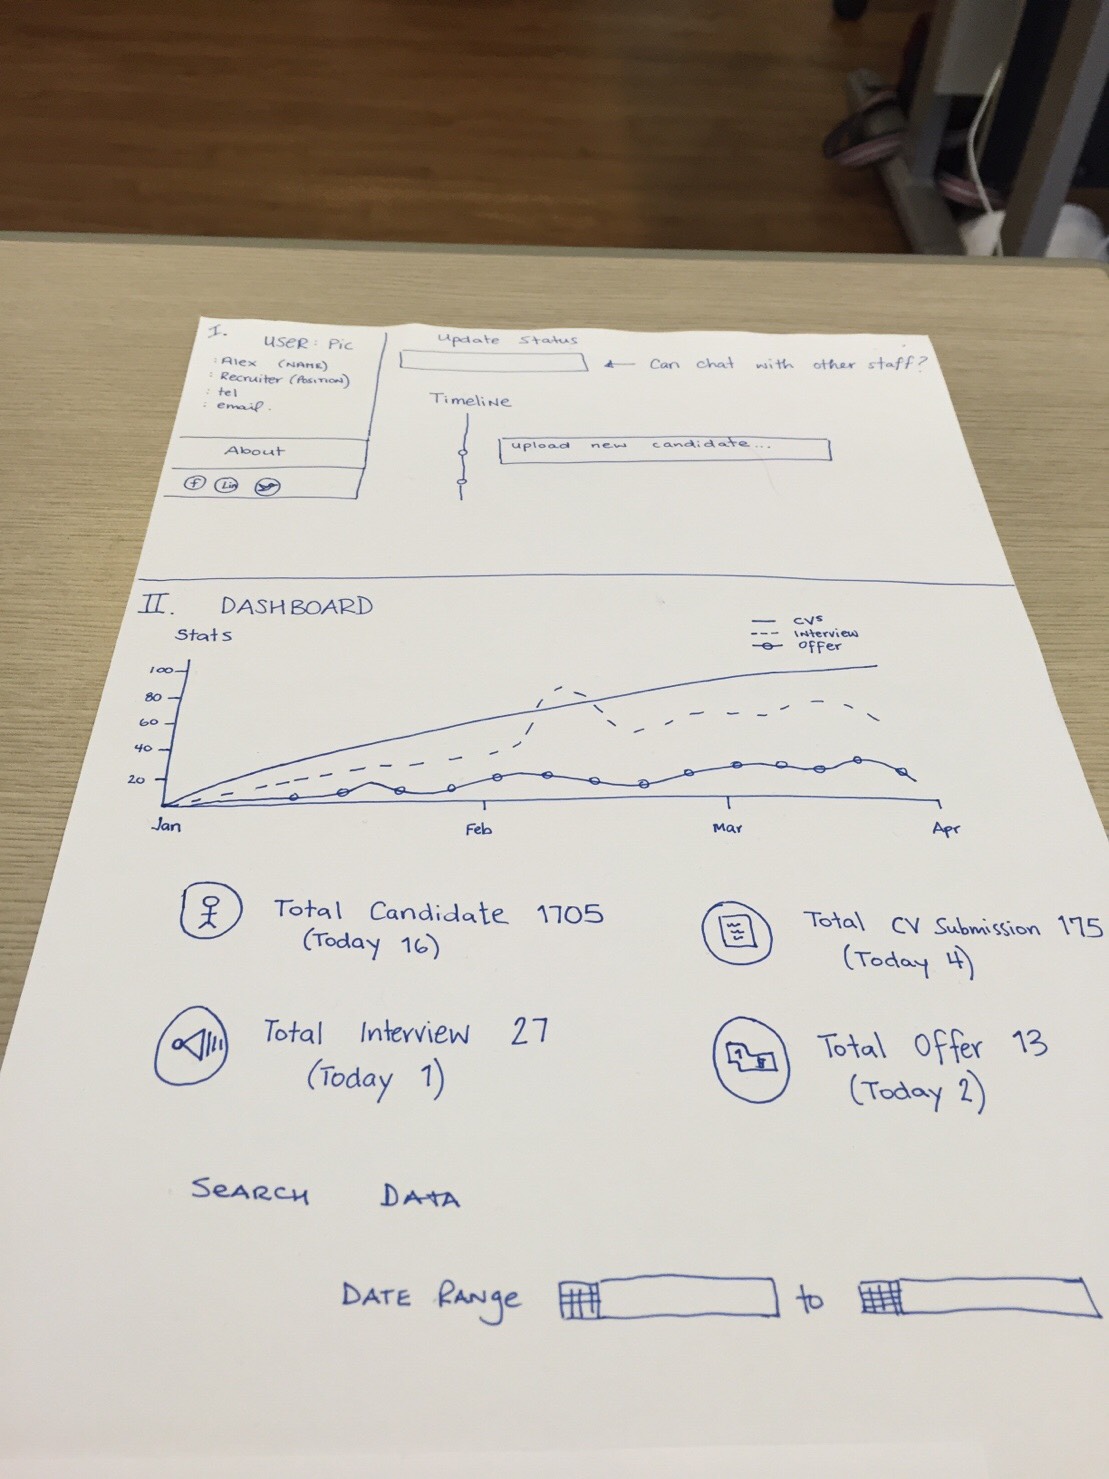 I.
USER: Pic
: Alex (NAME)
: Recruiter (POSITION)
: tel
: email.
About
f Lin
Update Status
← Can chat with other staff?
Timeline
upload new candidate...
II. DASHBOARD
Stats
CVs
Interview
Offer
100
80
60
40
20
Jan Feb Mar Apr
Total Candidate 1705
(Today 16)
Total CV Submission 175
(Today 4)
Total Interview 27
(Today 1)
Total Offer 13
(Today 2)
SEARCH DATA
DATE Range to